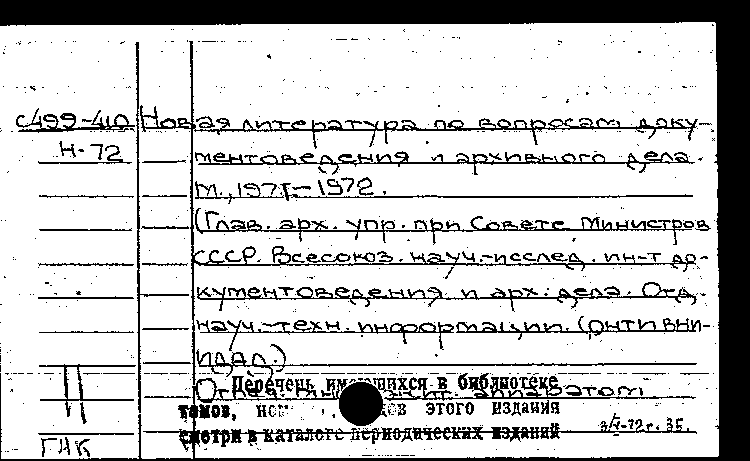 с499-410 Новая литература по вопросам доку-
Н-72 ментоведения и архивного дела.
М., 1971-1972.
(Глав. арх. упр. при Совете Министров
СССР. Всесоюз. науч.-исслед. ин-т до-
кументоведения и арх. дела. Отд.
науч.-техн. информации. (ОНТИ ВНИ-
ИДАД.)
Перечень имеющихся в библиотеке
аппаратом
томов, этого издания
смотри в каталоге периодических изданий
-72г. 35.
ГНК